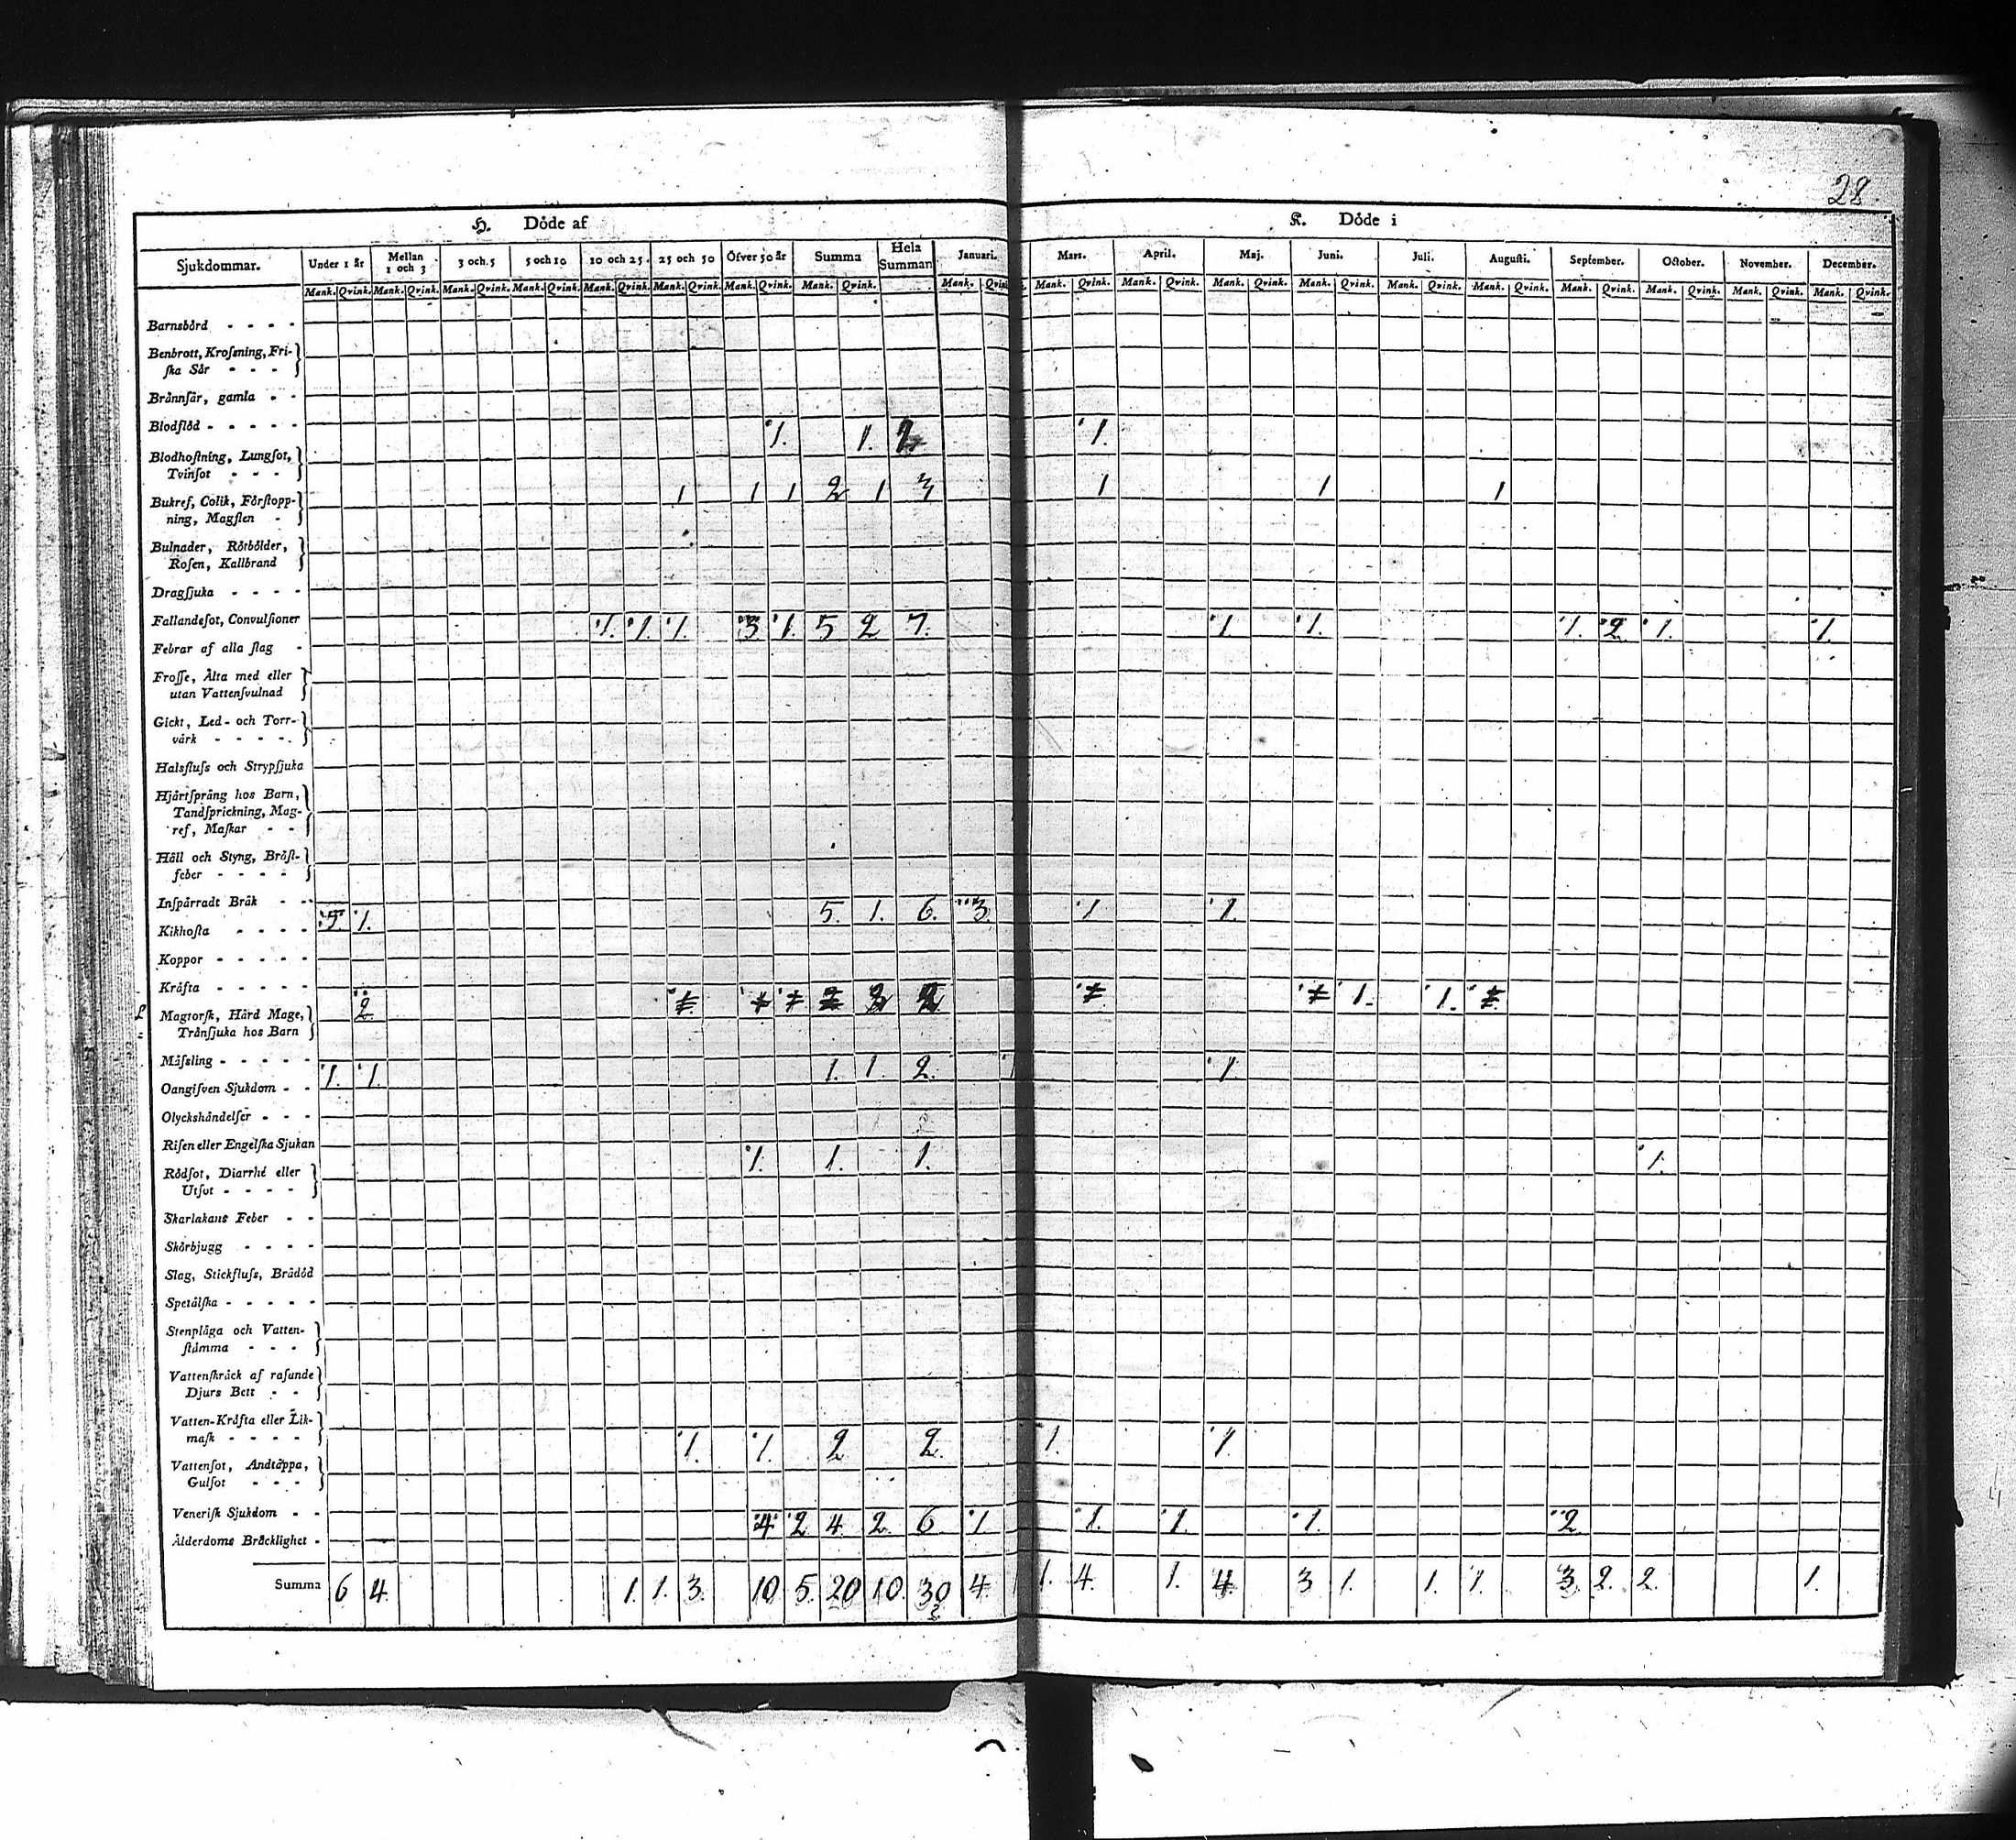 28.
H. Döde af
K. Döde i
Sjukdommar. Under 1 år Mellan 1 och 3 3 och 5 5 och 10 10 och 25. 25 och 50 Öfver 50 år Summa Hela Summan Januari. Mars. April. Maj. Juni. Juli. Augusti. September. October. November. December.
Mank. Qvink. Mank. Qvink. Mank. Qvink. Mank. Qvink. Mank. Qvink. Mank. Qvink. Mank. Qvink. Mank. Qvink. Mank. Mank. Qvink. Mank. Qvink. Mank. Qvink. Mank. Qvink. Mank. Qvink. Mank. Qvink. Mank. Qvink. Mank. Qvink. Mank. Qvink. Mank. Qvink.
Barnsbörd - - - -
Benbrott, Kroſsning, Fri-
ſka Sår - - -
Brännſår, gamla - -
Blodflöd - - - - - 1. 1. 1.
Blodhoſtning, Lungſot,
Tvinſot - - - 1 1 1 2 1 3 1 1 1
Bukref, Colik, Förſtopp-
ning, Magſten -
Bulnader, Rötbölder,
Roſen, Kallbrand
Dragſjuka - - - -
Fallandeſot, Convulſioner 1. 1. 1. 3 1. 5 2 7. 1. 1. 1. 2. 1. 1.
Febrar af alla ſlag -
Froſſe, Älta med eller
utan Vattenſvulnad
Gickt, Led- och Torr-
värk - - - -
Halsfluſs och Strypſjuka
Hjärtſprång hos Barn,
Tandſprickning, Mag-
ref, Maſkar - -
Håll och Styng, Bröſt-
feber - - - -
Inſpärradt Bråk - - 5. 1. 5. 1. 6. 3. 1. 1.
Kikhoſta - - - -
Koppor - - - - -
Kräfta - - - - - 2. 1. 1.
Magtorſk, Hård Mage,
Tränſjuka hos Barn
Mäſsling - - - - - 1. 1. 1. 1. 2. 1.
Oangifven Sjukdom - -
Olyckshändelſer - - -
Riſen eller Engelſka Sjukan 1. 1. 1. 1.
Rödſot, Diarrhé eller
Utſot - - - -
Skarlakans Feber - -
Skörbjugg - - - -
Slag, Stickfluſs, Brådöd
Spetälſka - - - - -
Stenplåga och Vatten-
ſtämma - - -
Vattenſkräck af raſande
Djurs Bett - -
Vatten-Kräfta eller Lik-
maſk - - - - 1. 1. 2 2. 1. 1.
Vattenſot, Andtäppa,
Gulſot - - -
Veneriſk Sjukdom - - 4. 2 4. 2. 6 1 1. 1. 1. 2.
Ålderdoms Bräcklighet -
Summa 6 4. 1. 1. 3. 10 5. 20 10. 30 4. 1. 4. 1. 4. 3 1. 1. 1. 3. 2. 2. 1.